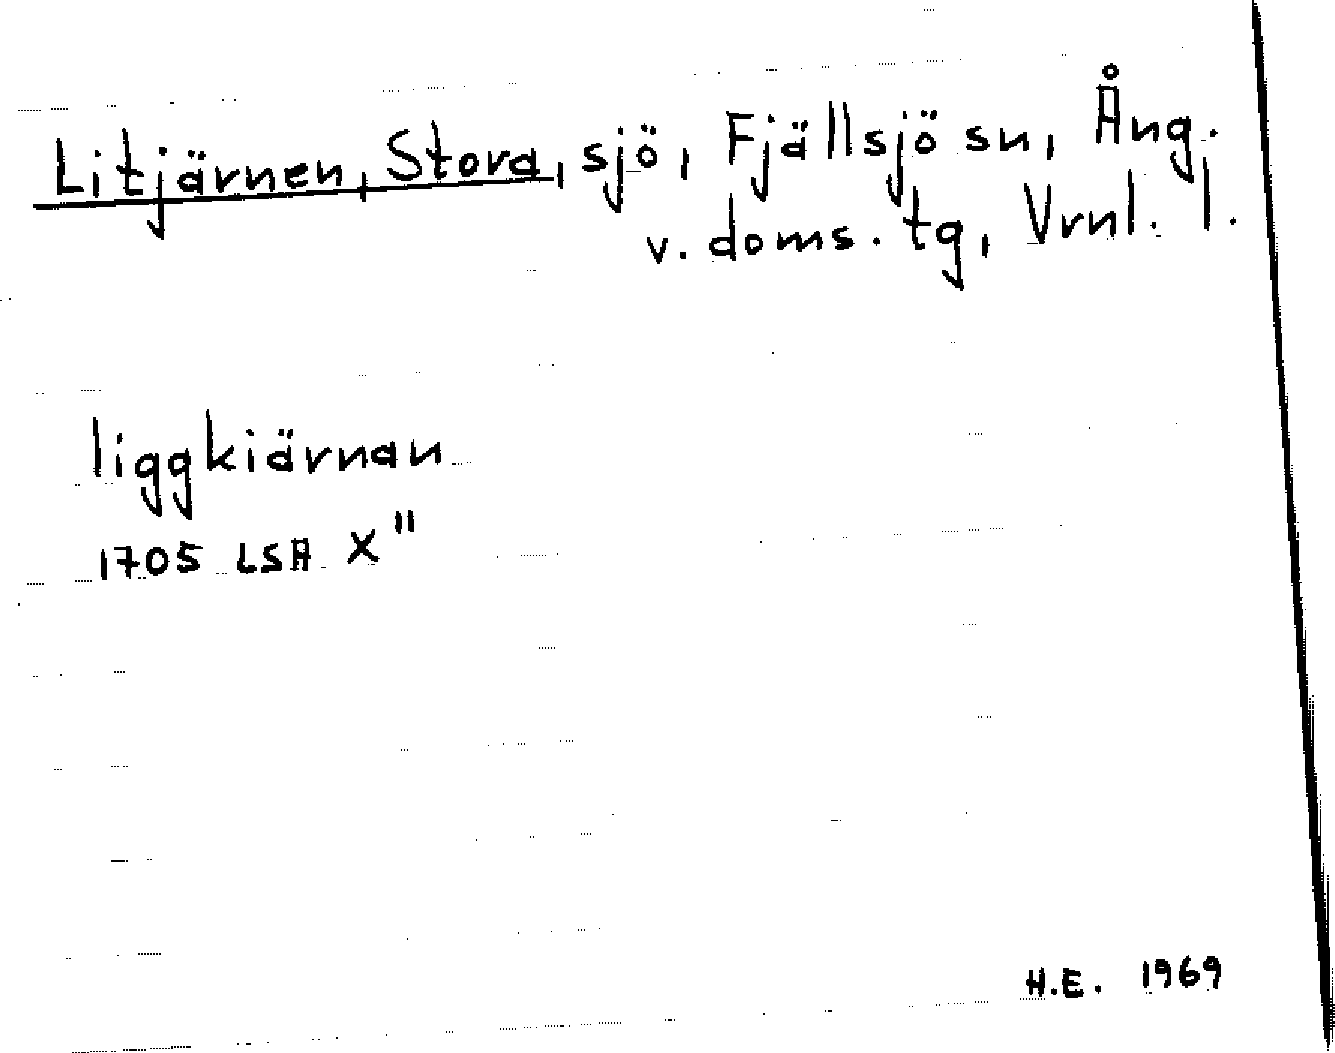 Litjärnen, Stora, sjö, Fjällsjö sn, Ång.
v. doms. tg, Vrnl. l.
liggkiärnan
1705 LSA X"
H.E. 1969